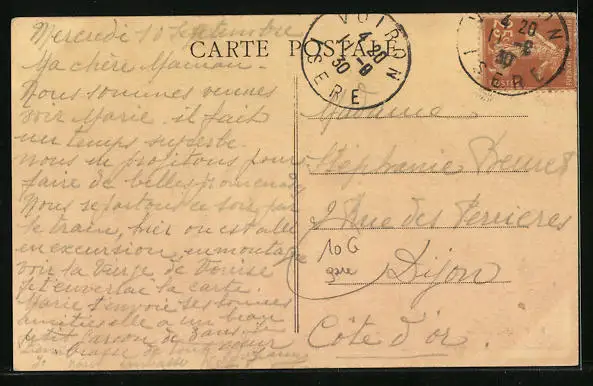 CARTE POSTALE
Mercredi 10 Septembre
Ma chère Maman.
Nous sommes venues
voir Marie. il fait
un temps superbe.
nous en profitons pour
faire de belles promenades
Nous repartons ce soir par
le train, hier on est allé
en excursion en montagne
voir la Vierge de
et envoie la carte.
Marie t'envoie ses bonnes
amitiés elle a un beau
petit garçon de 3 ans
VOIRON
4 20
-9
30
ISERE
4 20
-9
30
ISERE
25c
POSTES
Madame
Stéphanie
2 Rue des Perrieres
10 G
gare
Dijon
Côte d'or.